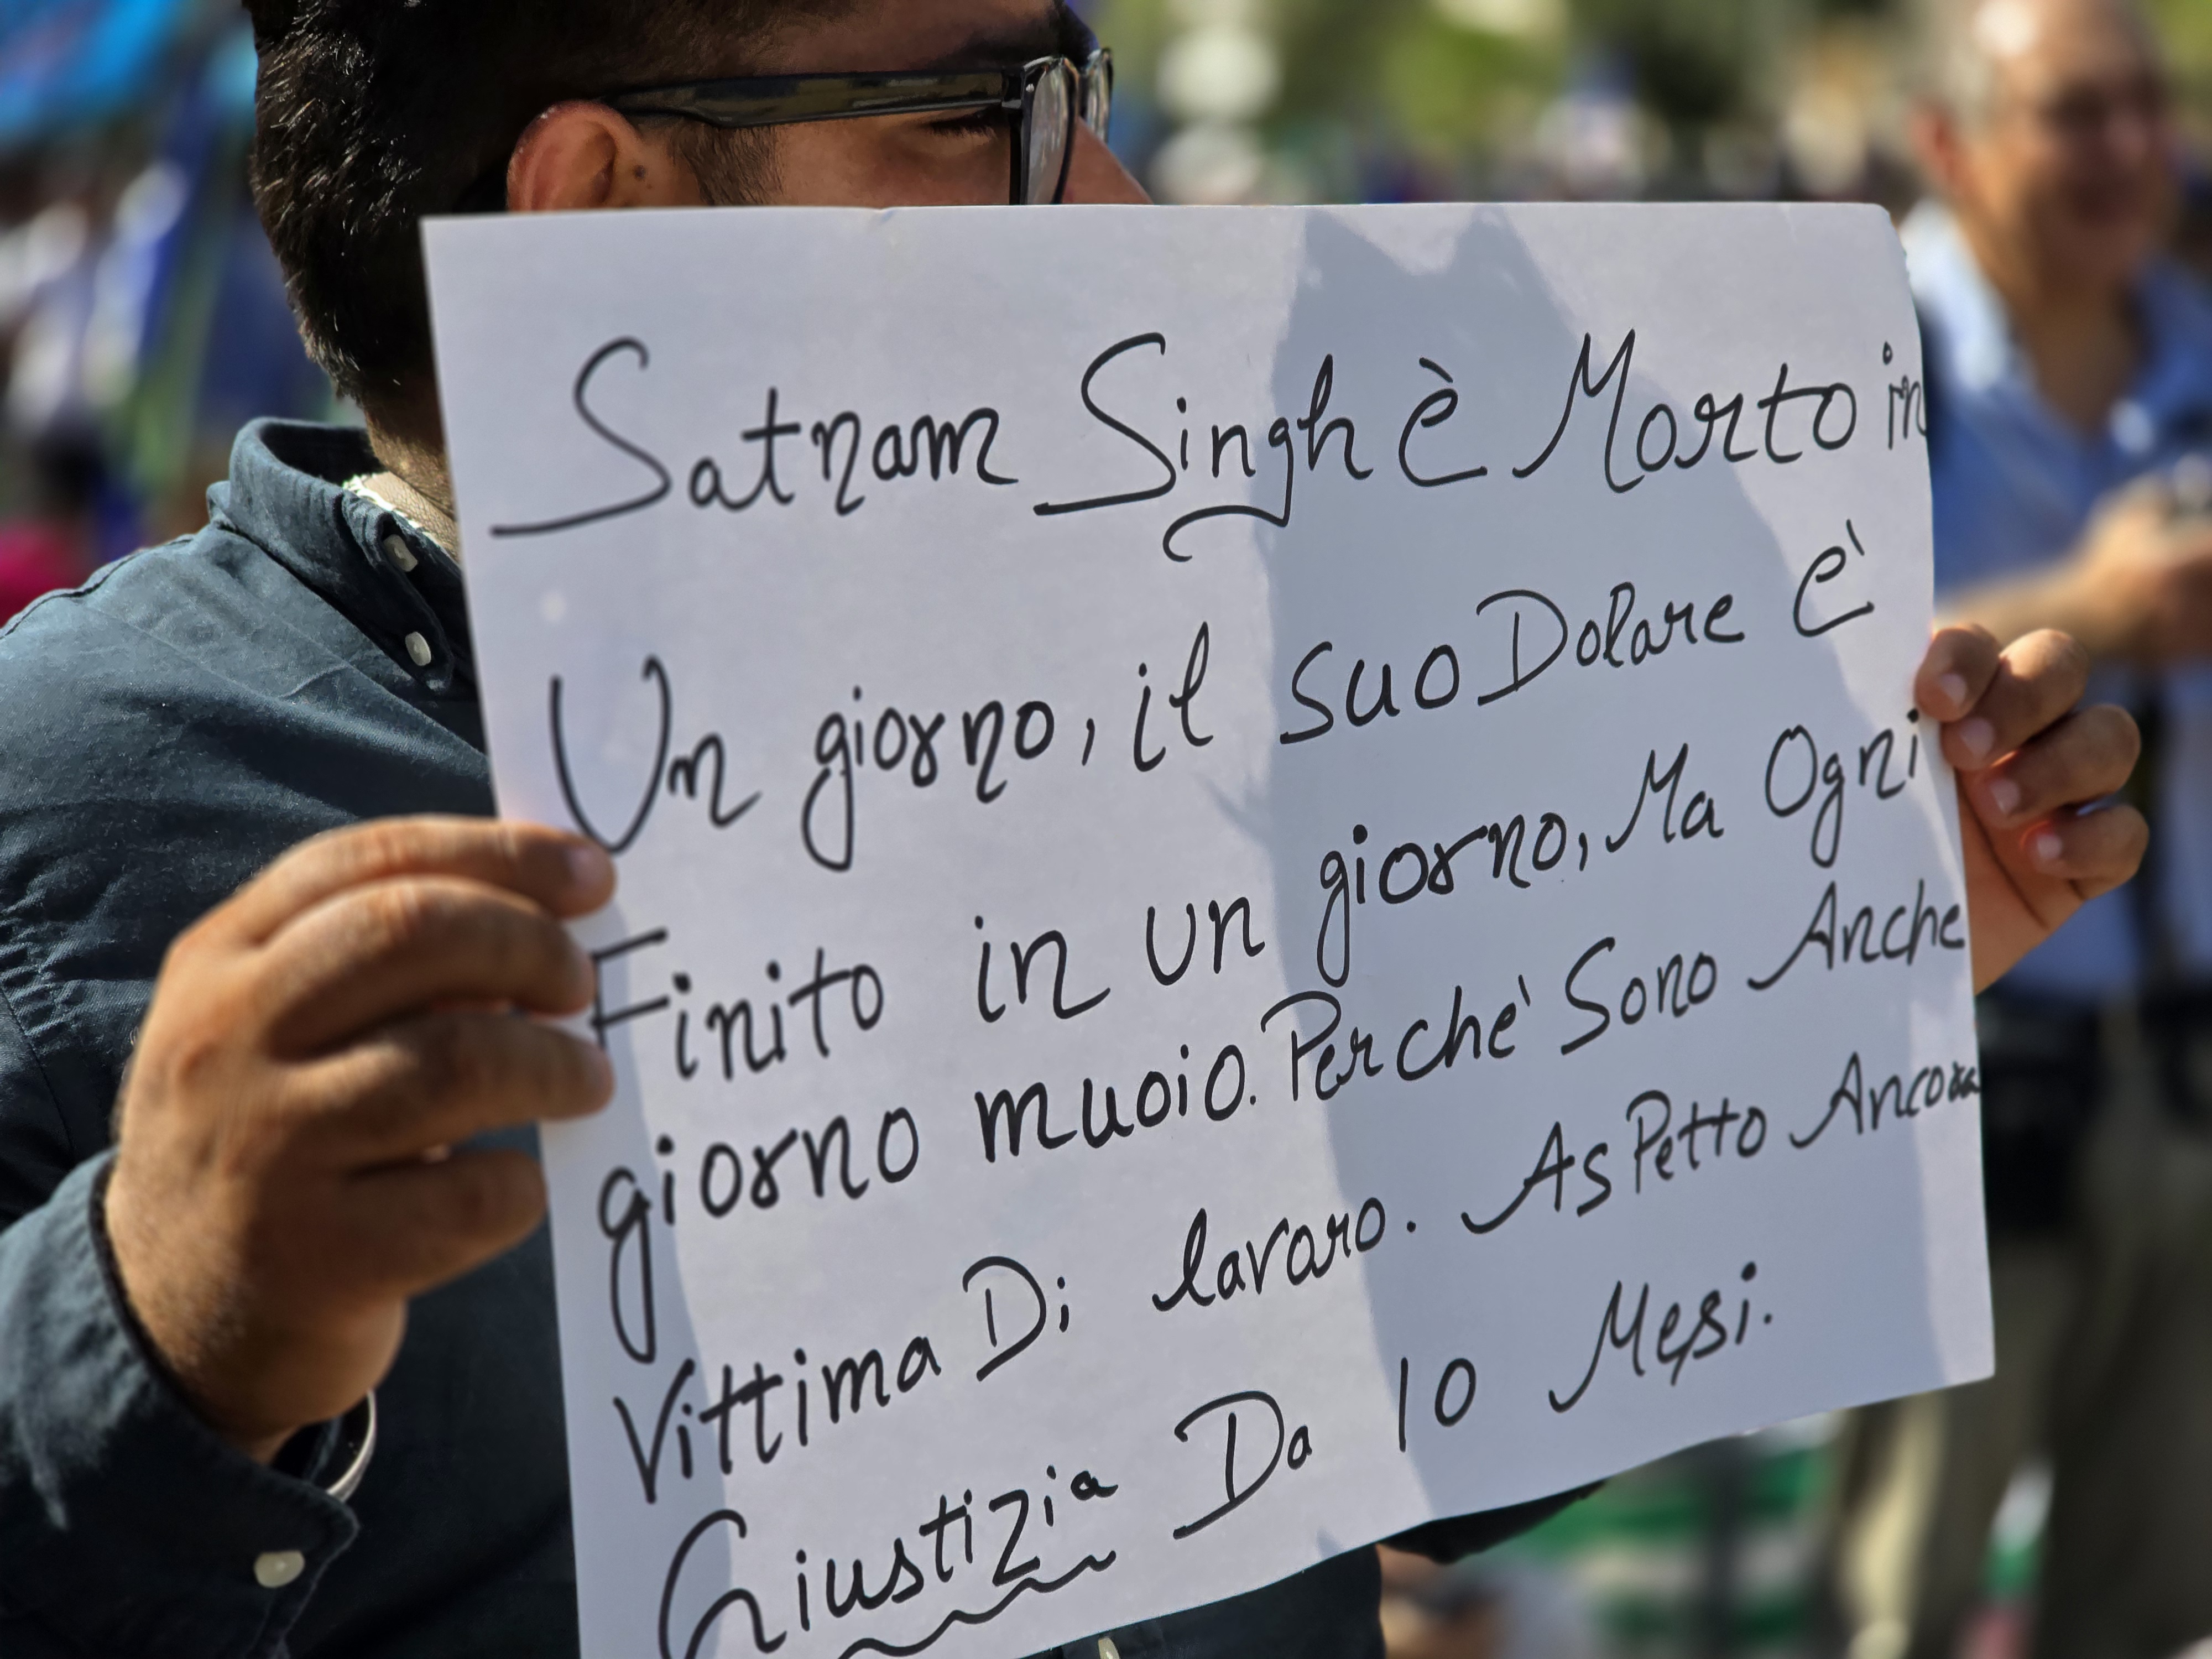 Satnam Singh è Morto in
Un giorno, il suo Dolare è
Finito in un giorno, Ma Ogni
giorno muoio. Perchè Sono Anche
Vittima Di lavoro. AsPetto Ancora
Giustizia Da 10 Mesi.